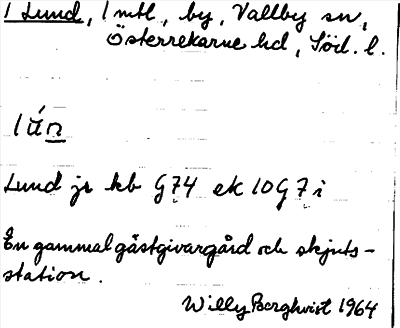 1 Lund, 1 mtl, by, Vallby sn,
Österrekarne hd, Söd. l.
lún
Lund jr kb G74 ek 10G7i
En gammal gästgivargård och skjuts-
station.
Willy Berghvist 1964